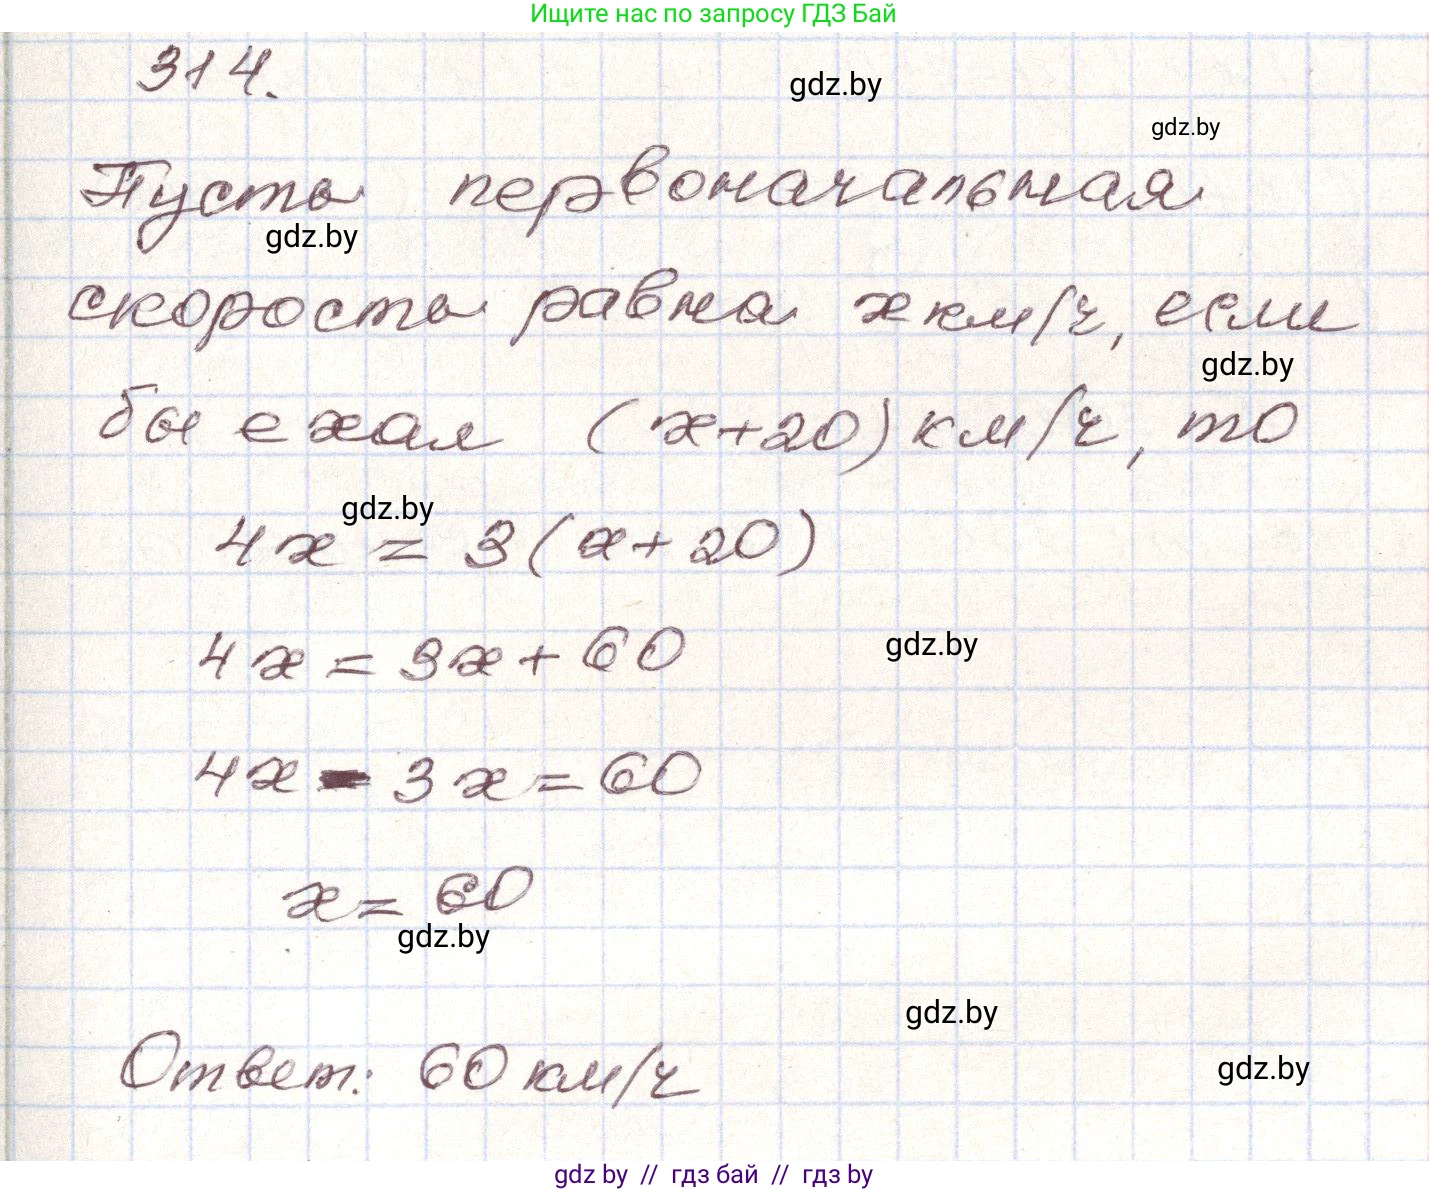 Ищите нас по запросу ГДЗ Бай
314.
gdz.by
gdz.by
Пусть первоначальная
gdz.by
скорость равна x км/ч, если
gdz.by
бы ехал (x+20) км/ч, то
gdz.by
4x = 3(x+20)
4x = 3x + 60
gdz.by
4x - 3x = 60
x = 60
gdz.by
gdz.by
Ответ: 60 км/ч
gdz.by
gdz by // гдз бай // гдз by